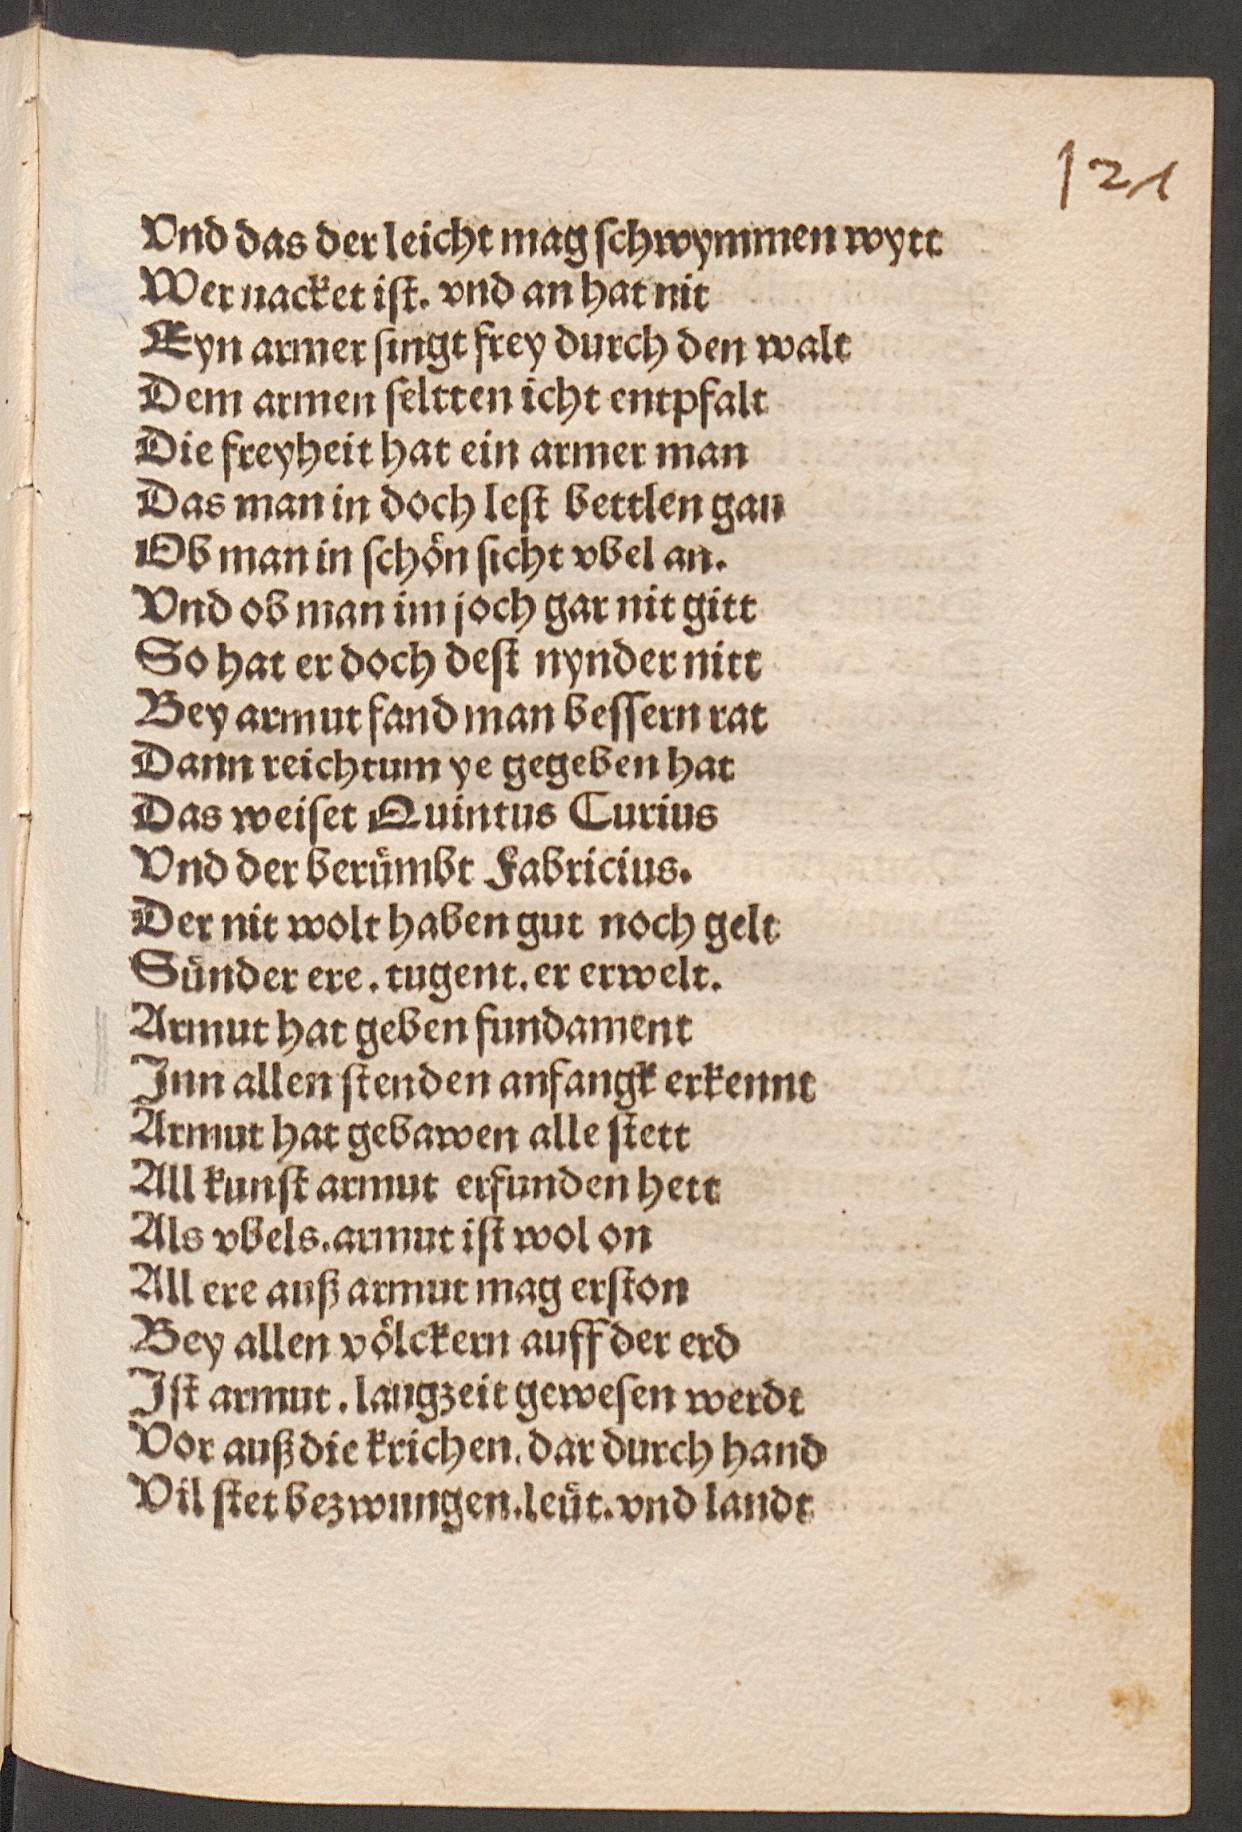 121
Vnd das der leicht mag ſchwymmen wytt
Wer nacket iſt. vnd an hat nit
Eyn armer ſingt frey durch den walt
Dem armen ſeltten icht entpfalt
Die freyheit hat ein armer man
Das man in doch leſt bettlen gan
Ob man in ſchoͤn ſicht vbel an.
Vnd ob man im joch gar nit gitt
So hat er doch deſt nynder nitt
Bey armut fand man beſſern rat
Dann reichtum ye gegeben hat
Das weiſet Quintus Curius
Vnd der beruͤmbt Fabricius.
Der nit wolt haben gut noch gelt
Suͤnder ere. tugent. er erwelt.
Armut hat geben fundament
Jnn allen ſtenden anfangk erkennt
Armut hat gebawen alle ſtett
All kunſt armut erfunden hett
Als vbels. armut iſt wol on
All ere auß armut mag erſton
Bey allen voͤlckern auff der erd
Jſt armut. langzeit geweſen werdt
Vor auß die krichen. dar durch hand
Vil ſtet bezwungen. leuͤt. vnd landt